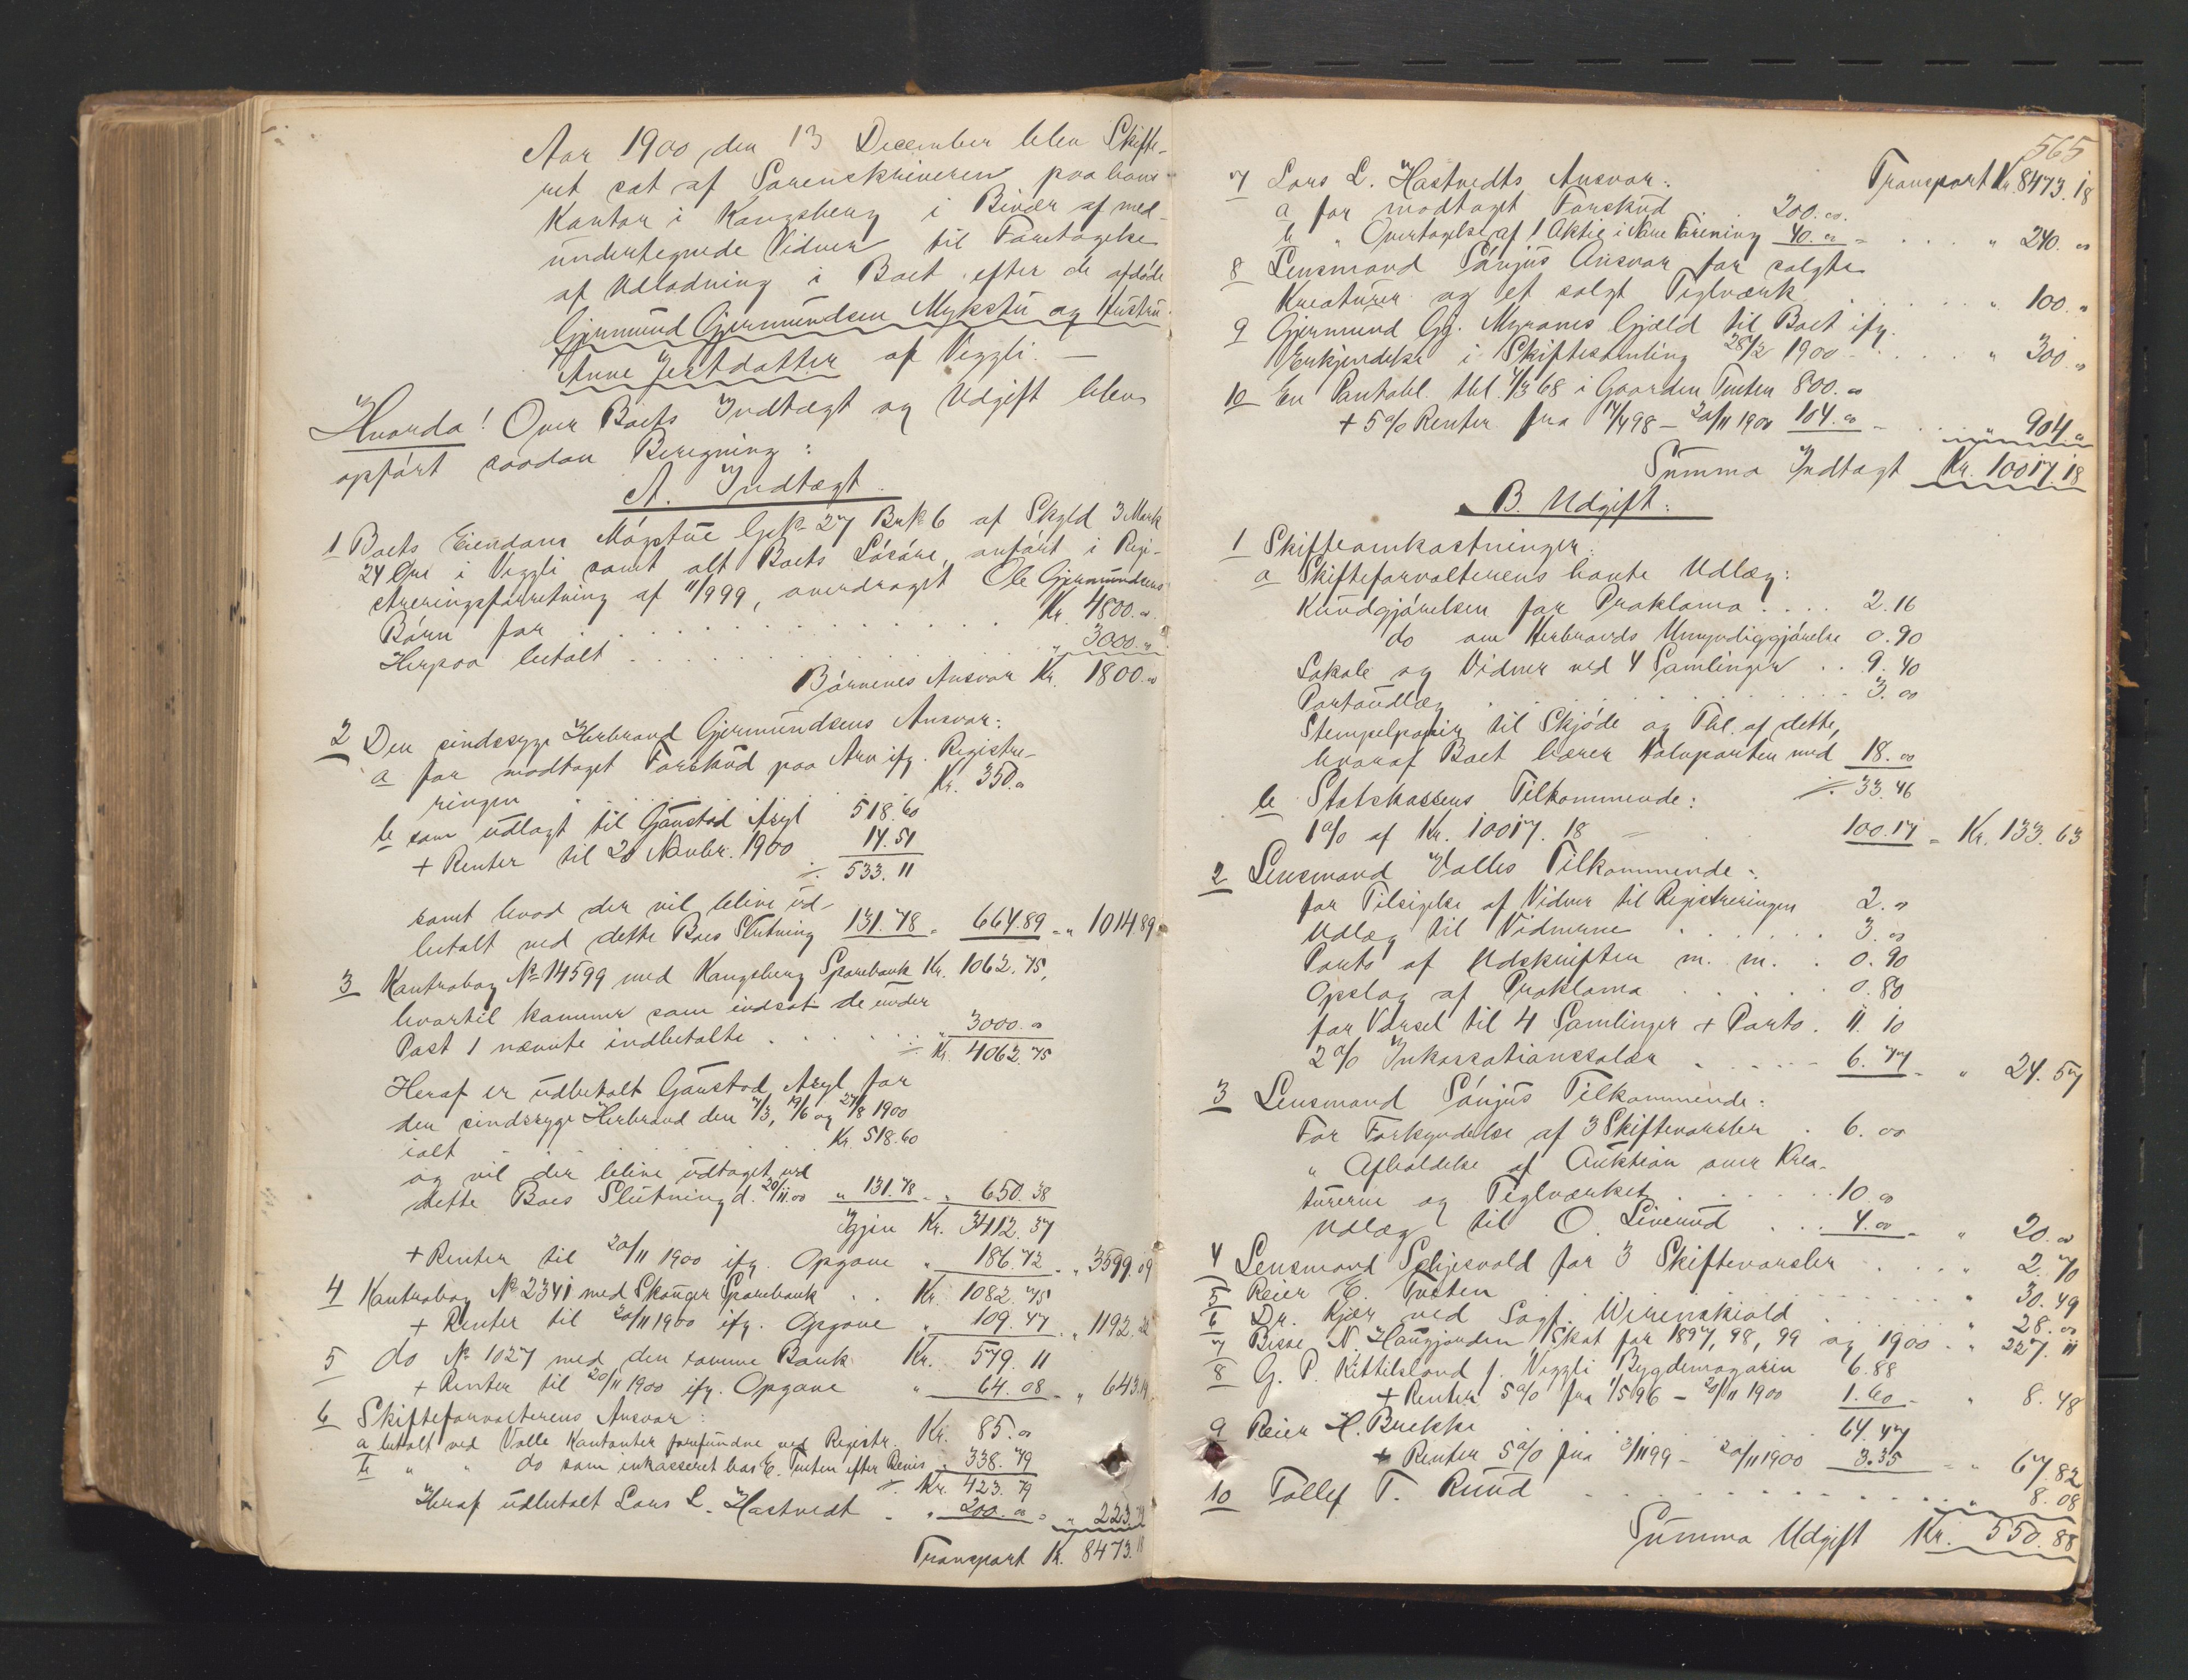 Aar 1900, den 13 December blev Skifte-
ret sat af Sorenskriveren paa hans
Kontor i Kongsberg i Bivær af med-
undertegnede Vidner til Foretagelse
af Udlodning i Boet efter de afdøde
Gjermund Gjermundsen Mykstu og Hustru
Anne Jertdatter af Veggli. —
Hvorda! Over Boets Indtægt og Udgift blev
opført saadan Beregning:
A. Indtægt.
1 Boets Eiendom Mógstue Gk. 27 Brk 6 af Skyld 3 Mark
24 Øre i Veggli samt alt Boets Løsøre, anført i Regi-
streringsforretning af 11/9 99, overdraget Ole Gjermundsens
Børn for . . . . . Kr. 4800. "
Herpaa betalt . . . . . " 3000. "
Børnenes Ansvar Kr. 1800. "
2 Den sindssyge Herbrand Gjermundsens Ansvar:
a for modtaget Forskud paa Arv ifg. Registre-
ringen . . . . . Kr. 350. "
b som udlagt til Gaustad Asyl 518.60
+ Renter til 20 Novbr. 1900 14.51
÷ 533.11
samt hvad der vil blive ud-
betalt ved dette Boes Slutning 131.78 = 664.89 = " 1014.89
3 Kontrabog No 14599 med Kongsberg Sparebank Kr. 1062.75,
hvortil kommer som indsat de under
Post 1 nævnte indbetalte . . . . " 3000. "
÷ Kr. 4062.75
Heraf er udbetalt Gaustad Asyl for
den sindssyge Herbrand den 7/3, 19/6 og 27/8 1900
ialt . . . . . Kr. 518.60
og vil der blive udtaget ved
dette Boes Slutning d. 20/11 00 " 131.78 = " 650.38
Igjen Kr. 3412.37
+ Renter til 20/11 1900 ifg. Opgave " 186.72 = " 3599.09
4 Kontrabog No 2341 med Skouger Sparebank . . Kr. 1082.75
+ Renter til 20/11 1900 ifg. Opgave " 109.47 = " 1192.22
5 do No 1027 med den samme Bank Kr. 579.11
+ Renter til 20/11 1900 ifg. Opgave " 64.08 = " 643.19
6 Skifteforvalterens Ansvar:
a betalt ved Valle Kontanter forefundne ved Registr. Kr. 85. "
b " " do som inkasseret hos E. Tveten efter Revis " 338.79
÷ Kr. 423.79
Heraf udbetalt Lars L. Hastvedt . " 200. " = " 223.79
Transport K. 8473.18
565
Transport Kr. 8473.18
7 Lars L. Hastvedts Ansvar:
a for modtaget Forskud . . 200. "
b " Overtagelse af 1 Aktie i Nore Forening 40. " = . . . " 240. "
8 Lensmand Sónjus Ansvar for solgte
Kreaturer og et solgt Teglværk . . . . . " 100. "
9 Gjermund Gj. Myrans Gjæld til Boet ifg.
Erkjendelse i Skiftesamling 28/2 1900 . . . . " 300. "
10 En Pantobl. tbl. 4/3 68 i Gaarden Tveten 800. "
+ 5% Renter fra 14/4 98 – 20/11 1900 104. " = . . . " 904. "
Summa Indtægt Kr. 10017.18
B. Udgift:
1 Skifteomkostninger:
a Skifteforvalterens havte Udlæg:
Kundgjørelsen for Proklama . . . . 2.16
do om Herbrands Umyndiggjørelse 0.90
Lokale og Vidner ved 4 Samlinger . . 9.40
Portoudlæg . . . . . 3. "
Stempelpapir til Skjøde og Tbl. af dette,
hvoraf Boet bærer Halvparten med 18. "
÷ 33.46
b Statskassens Tilkommende:
1% af Kr. 10017.18 — . 100.17 = Kr. 133.63
2 Lensmand Valles Tilkommende:
for Tilsigelse af Vidner til Registreringen 2. "
Udlæg til Vidnerne . . . . . 3. "
Porto af Udskriften m. m. . 0.90
Opslag af Proklama . . . . . 0.80
for Varsel til 4 Samlinger + Porto . 11.10
2% Inkassationssalær . . . . . 6.77 = " 24.57
3 Lensmand Sónjus Tilkommende:
For Forkyndelse af 3 Skiftevarsler . 6. "
" Afholdelse af Auktion over Krea-
turerne og Teglværket . . . . . 10. "
Udlæg til O. Liverud . . . 4. " = " 20. "
4 Lensmand Schjesvold for 3 Skiftevarsler . . . . " 2.70
5 Reier E. Tveten . . . . . " 30.49
6 Dr. Kjær ved Sagf. Werenskiold . . . . " 28. "
7 Bisse N. Haugjorden Skat for 1897, 98, 99 og 1900 . . " 227.11
8 G. P. Kittilsland f. Veggli Bygdemagasin 6.88
+ Renter 5% fra 1/5 96 – 20/11 1900 1.60 = " 8.48
9 Reier H. Brekke . . . . . 64.47
+ Renter 5% fra 3/11 99 – 20/11 1900 3.35 = " 67.82
10 Tollef T. Ruud . . . . . " 8.08
Summa Udgift Kr. 550.88